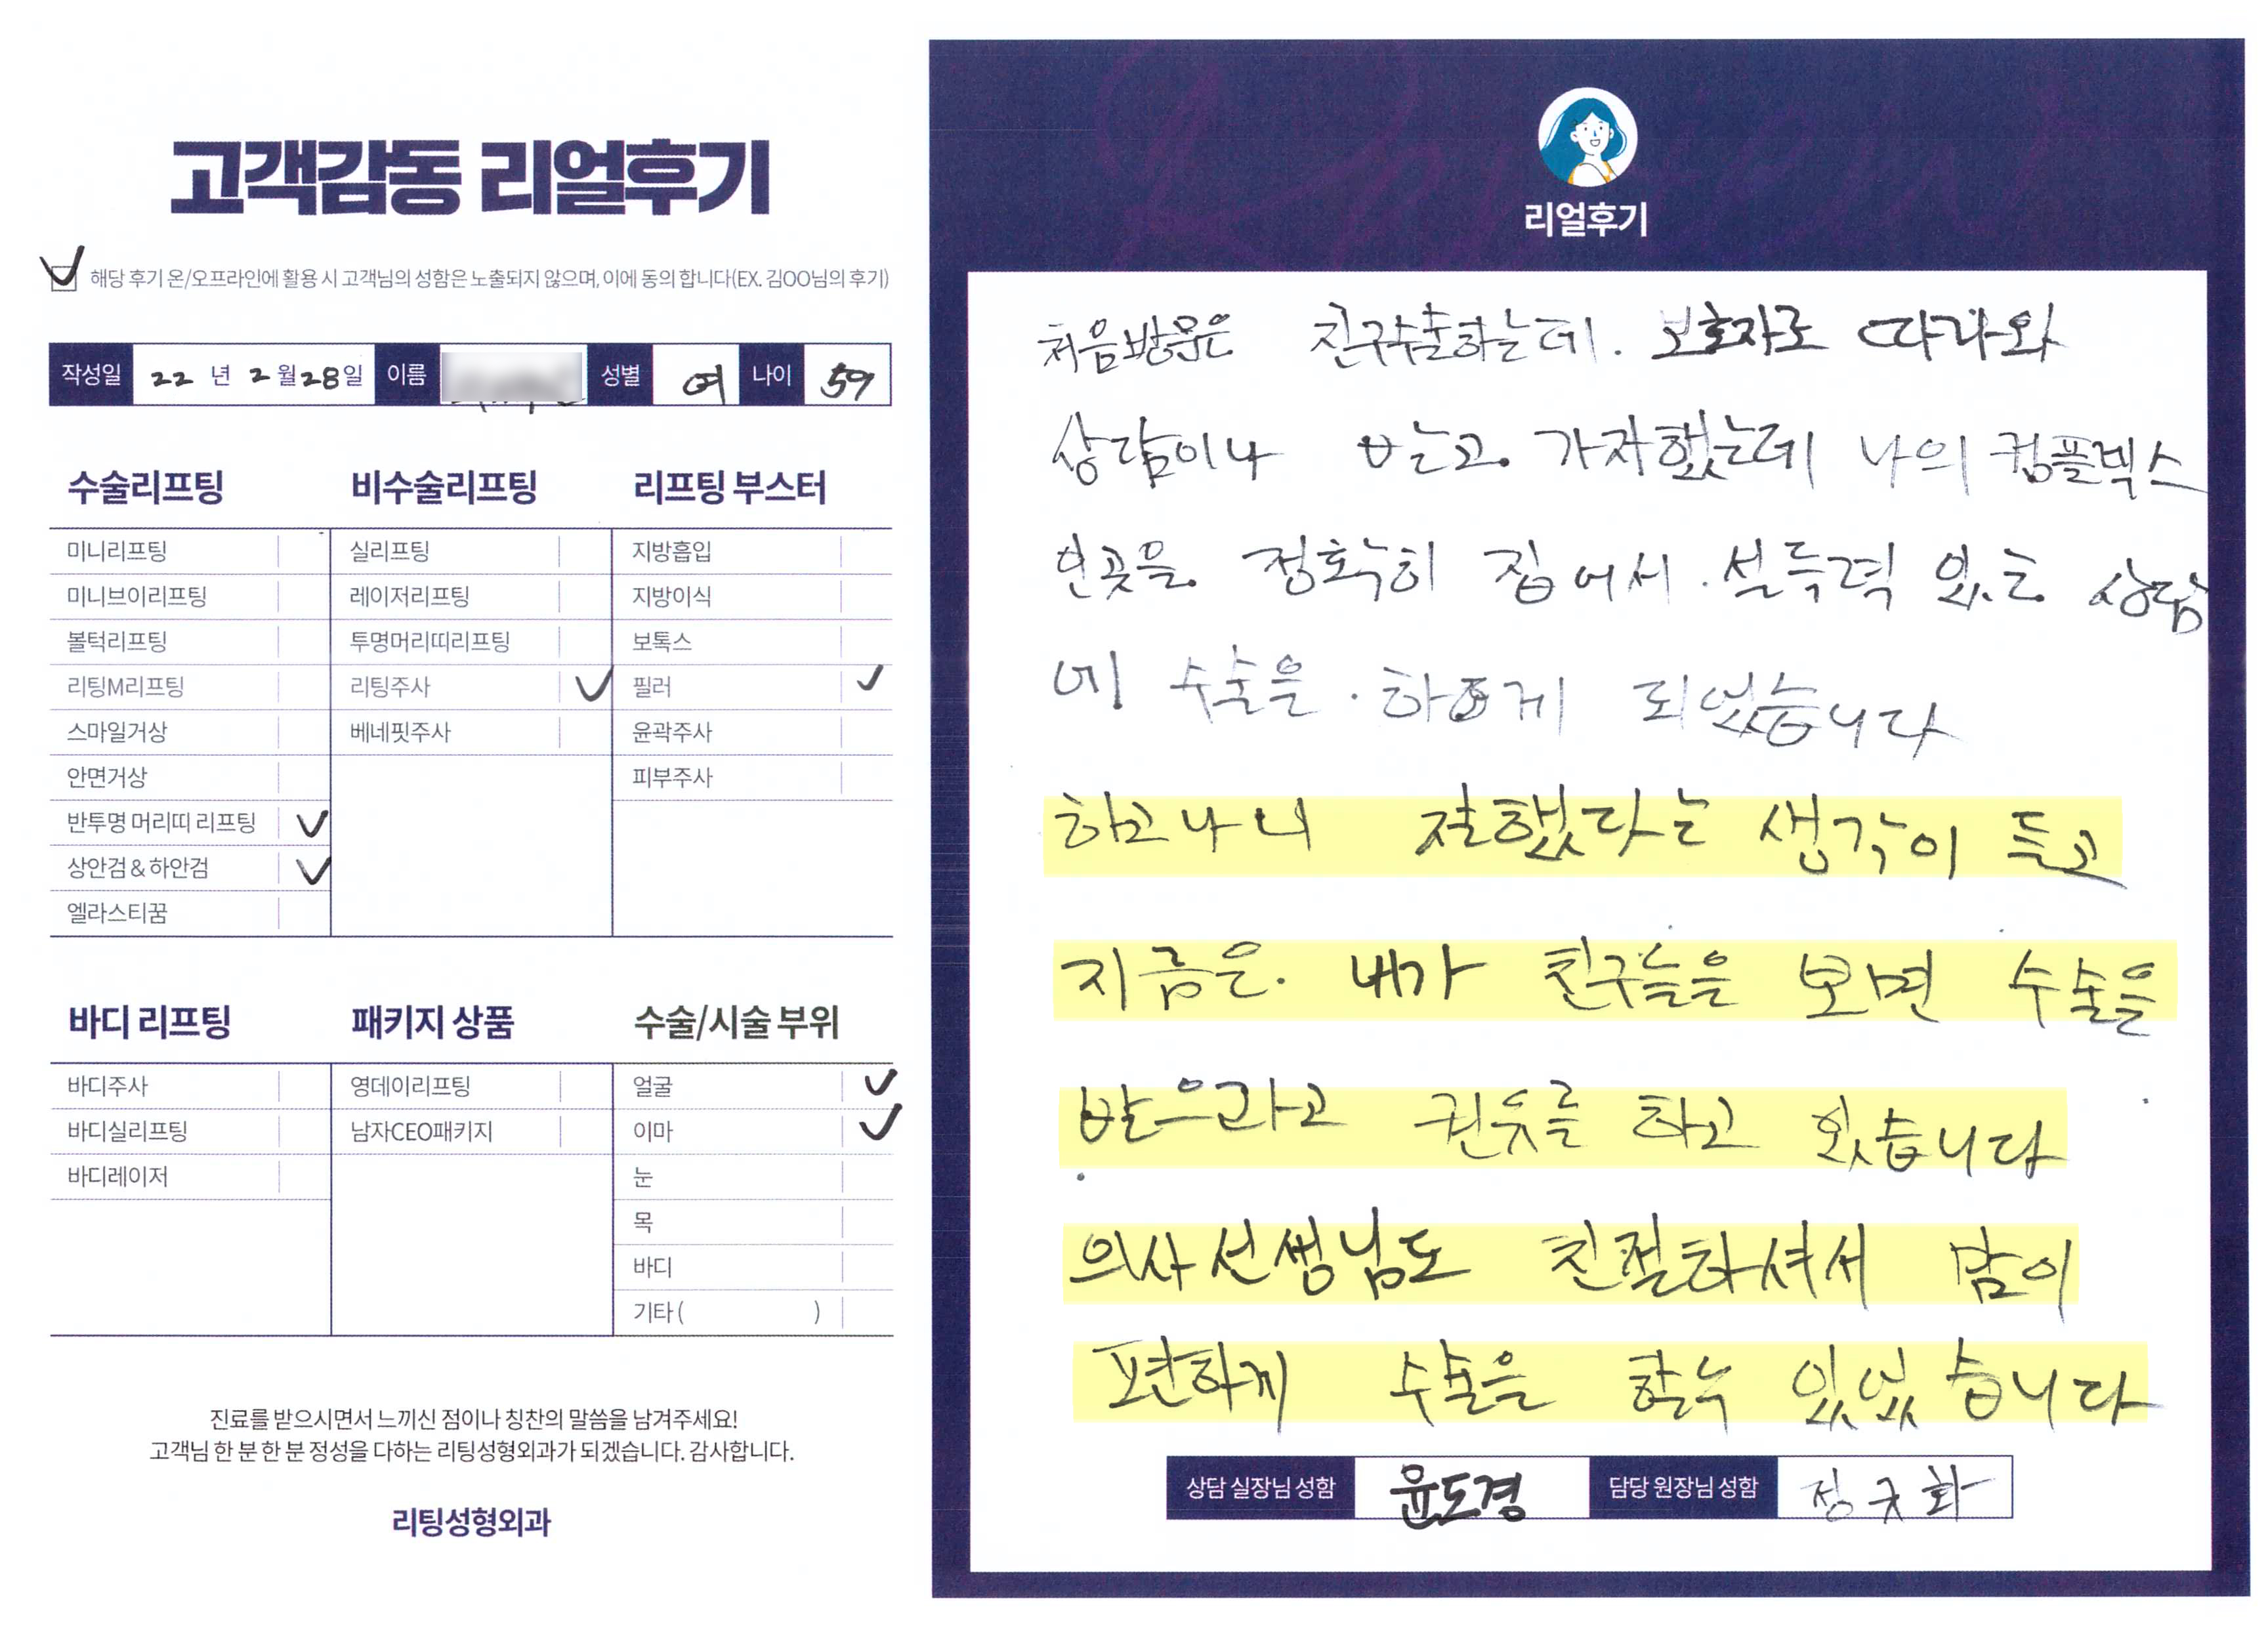 고객감동 리얼후기
해당 후기 온/오프라인에 활용 시 고객님의 성함은 노출되지 않으며, 이에 동의 합니다(EX. 김OO님의 후기)
작성일 22 년 2 월 28 일 이름 성별 여 나이 59
수술리프팅
미니리프팅
미니브이리프팅
볼턱리프팅
리팅M리프팅
스마일거상
안면거상
반투명 머리띠 리프팅
상안검 & 하안검
엘라스티꿈
비수술리프팅
실리프팅
레이저리프팅
투명머리띠리프팅
리팅주사
베네핏주사
리프팅 부스터
지방흡입
지방이식
보톡스
필러
윤곽주사
피부주사
바디 리프팅
바디주사
바디실리프팅
바디레이저
패키지 상품
영데이리프팅
남자CEO패키지
수술/시술 부위
얼굴
이마
눈
목
바디
기타 ( )
진료를 받으시면서 느끼신 점이나 칭찬의 말씀을 남겨주세요!
고객님 한 분 한 분 정성을 다하는 리팅성형외과가 되겠습니다. 감사합니다.
리팅성형외과
리얼후기
처음방문은 친구수술하는데. 보호자로 따라와
상담이나 받고 가자했는데 나의 컴플렉스
인곳을 정확히 집어서 설득력 있는 상담
에 수술은 하게 되었습니다
하고나니 잘했다는 생각이 들고
지금은. 내가 친구들을 보면 수술을
받으라고 권유를 하고 있습니다
의사선생님도 친절하셔서 맘이
편하게 수술을 할수 있었습니다
상담 실장님 성함 윤도경 담당 원장님 성함 정국화